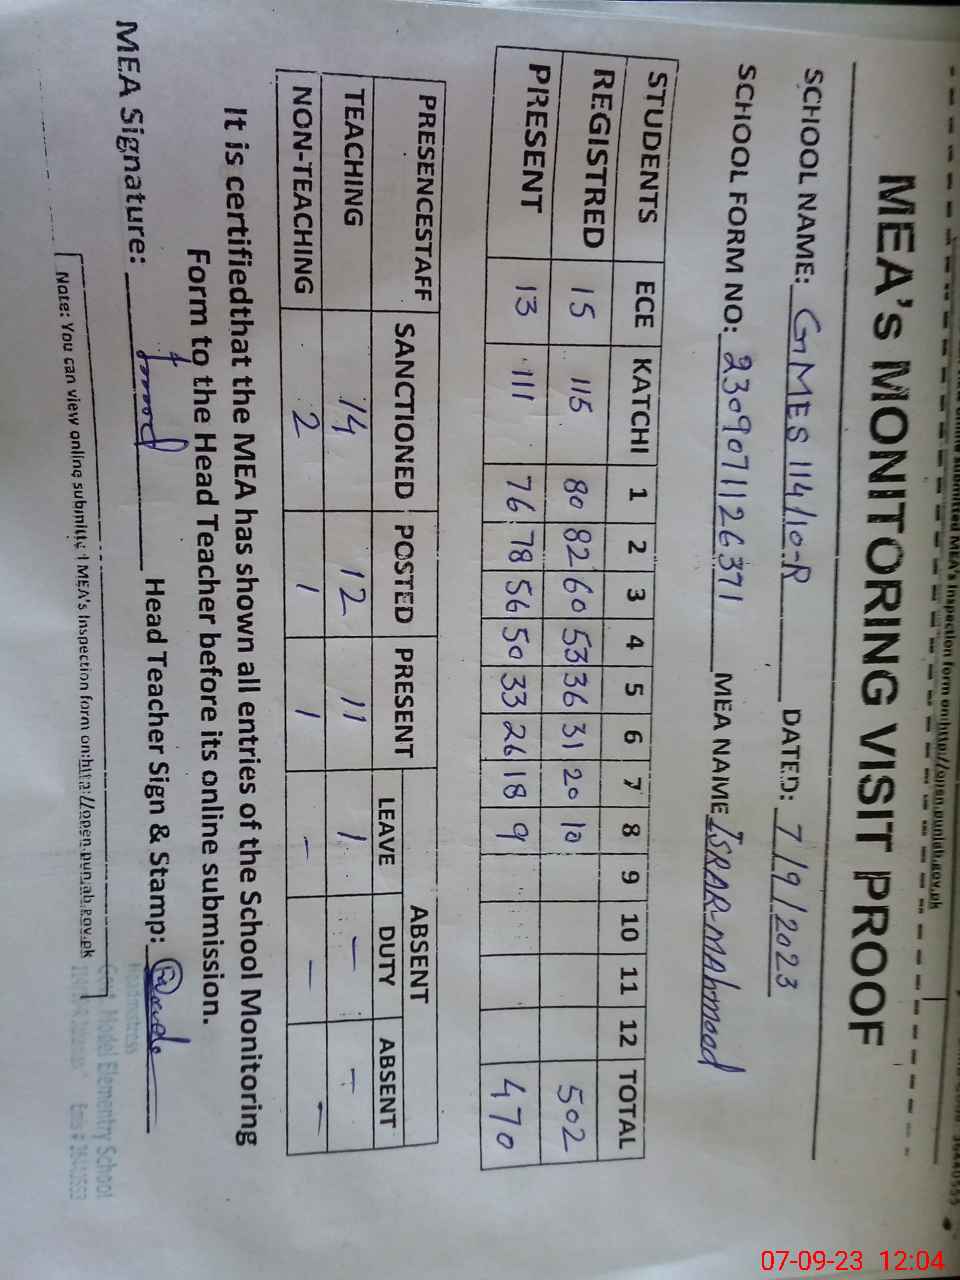 MEA's MONITORING VISIT PROOF
SCHOOL NAME: GMES 114/10-R DATED: 7/9/2023
SCHOOL FORM NO: 2309071126371 MEA NAME ISRAR-MAhmood
STUDENTS ECE KATCHI 1 2 3 4 5 6 7 8 9 10 11 12 TOTAL
REGISTRED 15 115 80 82 60 53 36 31 20 10 502
PRESENT 13 111 76 78 56 50 33 26 18 9 470
PRESENCESTAFF SANCTIONED POSTED PRESENT ABSENT
LEAVE DUTY ABSENT
TEACHING 14 12 11 1 - -
NON-TEACHING 2 1 1 - - -
It is certifiedthat the MEA has shown all entries of the School Monitoring
Form to the Head Teacher before its online submission.
MEA Signature: Head Teacher Sign & Stamp:
Headmistress
Govt. Model Elementry School
Note: You can view online submitted MEA's Inspection form on:http://open.punjab.gov.pk
07-09-23 12:04